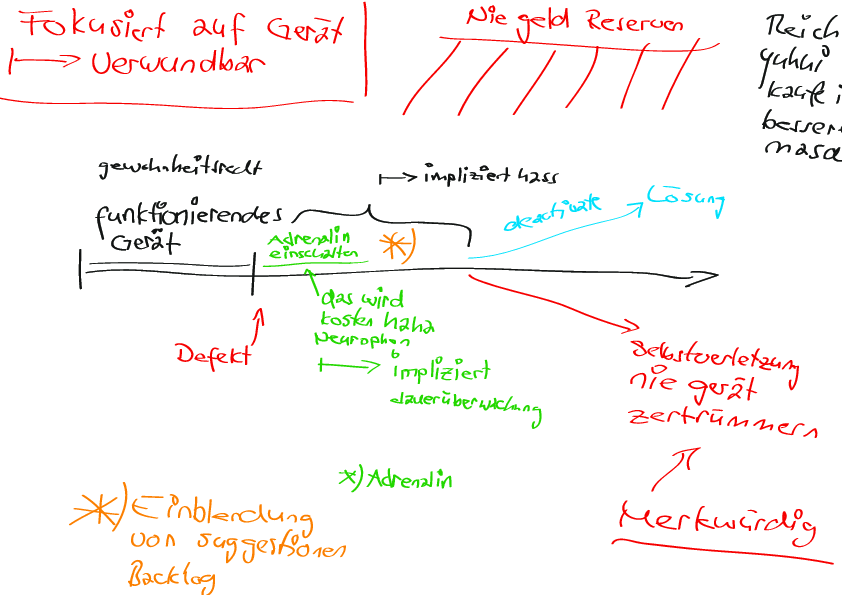 Fokusiert auf Gerät
Verwundbar
Nie geld Reserven
Reich
yuhui
kaufe i
besser
nasa
gewohnheitsrecht
impliziert hass
funktionierendes
Gerät
Adrenalin
einschalten
*)
deactivate
Lösung
das wird
kosten haha
Neurophon
impliziert
dauerüberwachung
Defekt
Selbstverletzung
nie gerät
zertrümmern
x) Adrenalin
*) Einblendung
von suggestionen
Backlog
Merkwürdig